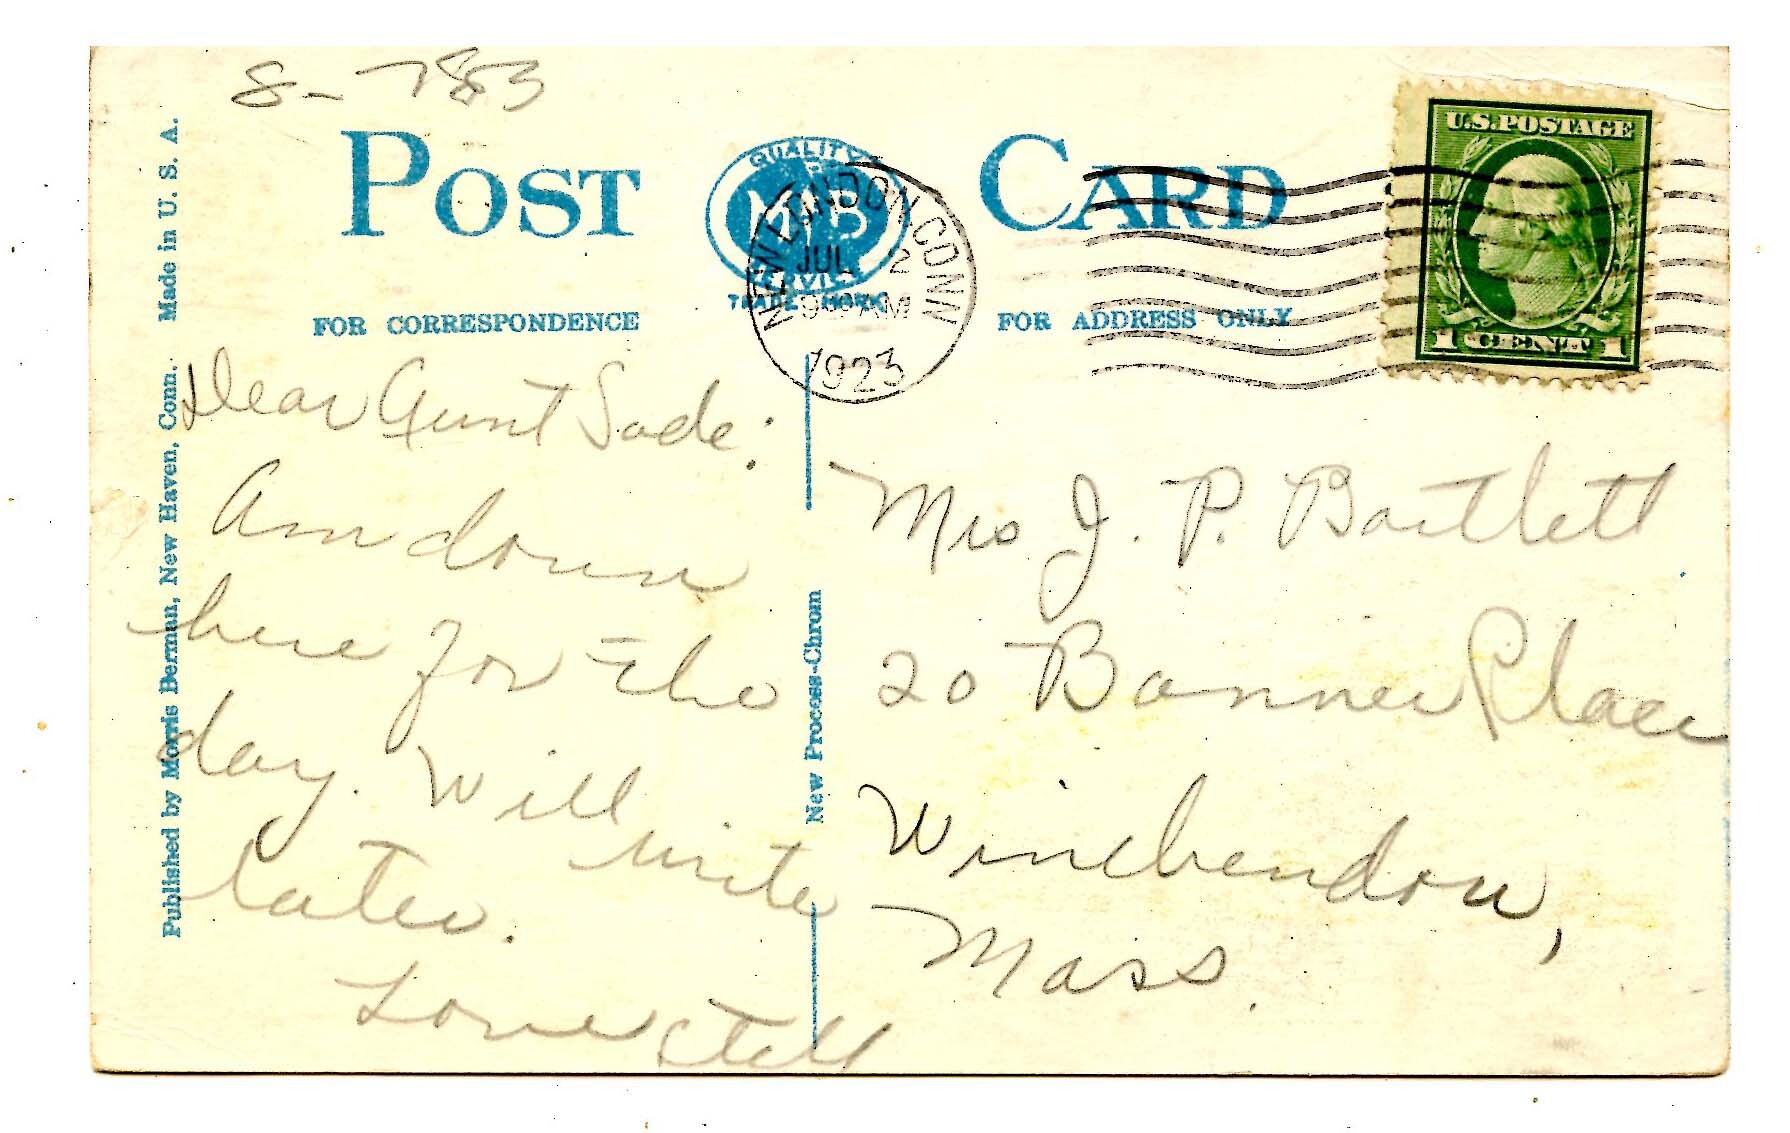 8-783
POST CARD
QUALITY
MB
SERVICE
TRADE MARK
NEW LONDON, CONN
JUL 2
9 AM
1923
U.S. POSTAGE
1 CENT 1
FOR CORRESPONDENCE
FOR ADDRESS ONLY
Dear Aunt Sade:
Am down
here for the
day. Will
write
later.
Love Stell
Mrs J. P. Bartlett
20 Banner Place
Winchendon,
Mass.
Published by Morris Berman, New Haven, Conn. Made in U. S. A.
New Process-Chrom